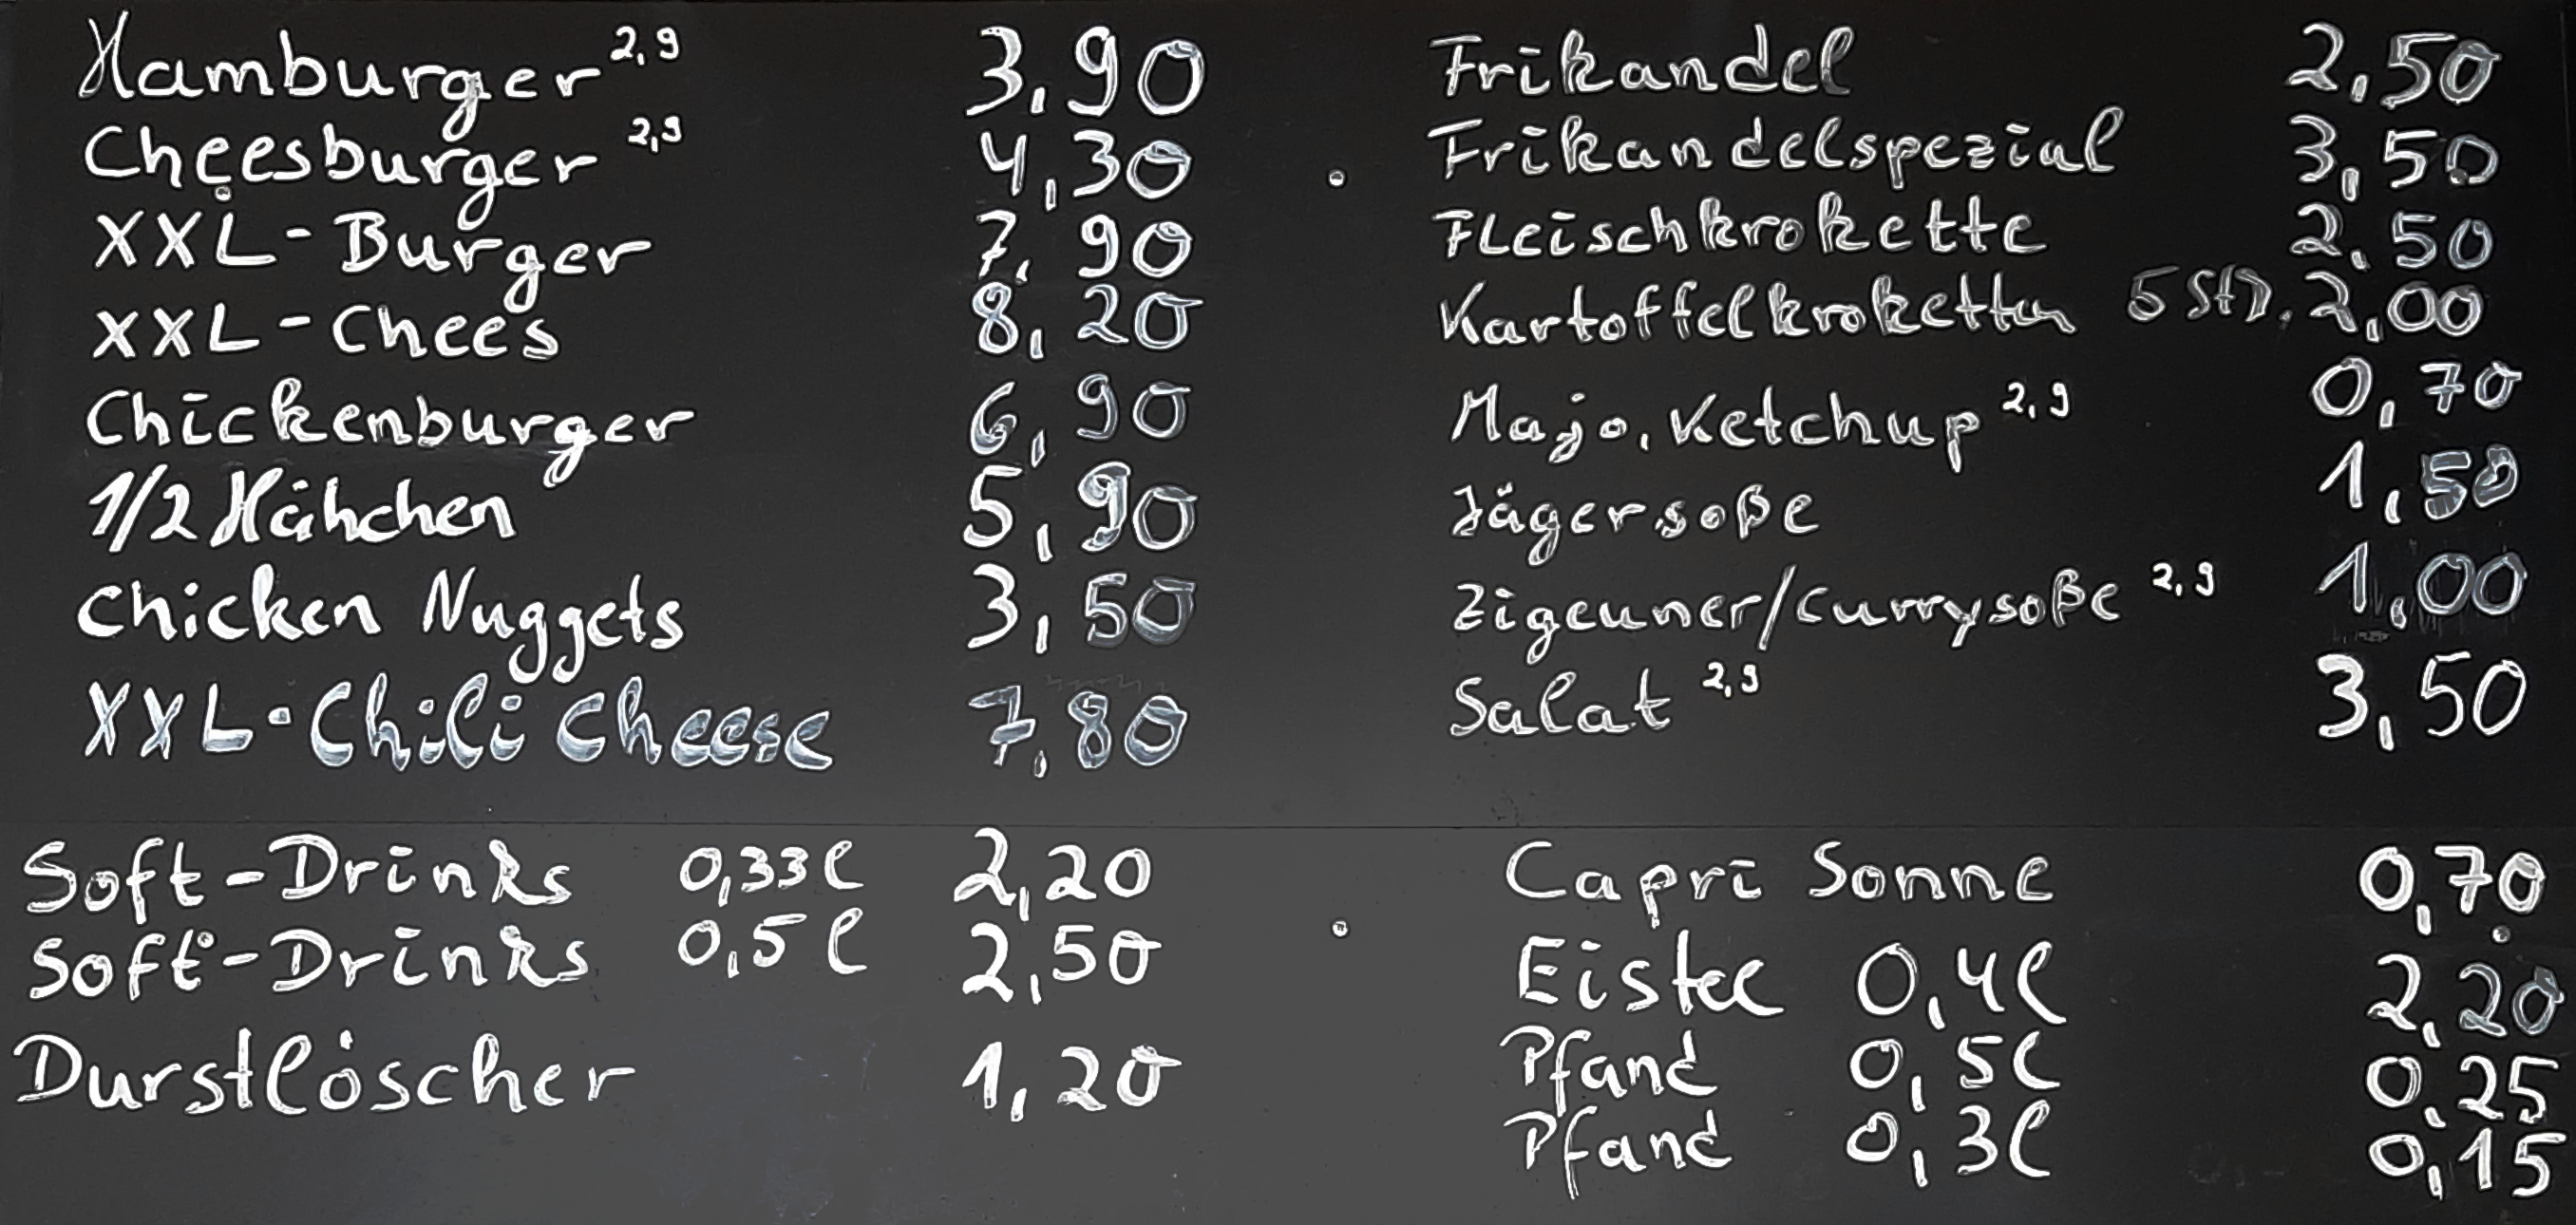 Hamburger 2,9 3,90
Cheesburger 2,9 4,30
XXL-Burger 7,90
XXL-Chees 8,20
Chickenburger 6,90
1/2 Hähchen 5,90
Chicken Nuggets 3,50
XXL-Chili Cheese 7,80
Frikandel 2,50
Frikandelspezial 3,50
Fleischkrokette 2,50
Kartoffelkroketten 5 2,00
Majo, Ketchup 2,9 0,70
Jägersoße 1,50
Zigeuner/Currysoße 2,9 1,00
Salat 2,9 3,50
Soft-Drinks 0,33l 2,20
Soft-Drinks 0,5l 2,50
Durstlöscher 1,20
Capri Sonne 0,70
Eistee 0,4l 2,20
Pfand 0,5l 0,25
Pfand 0,3l 0,15